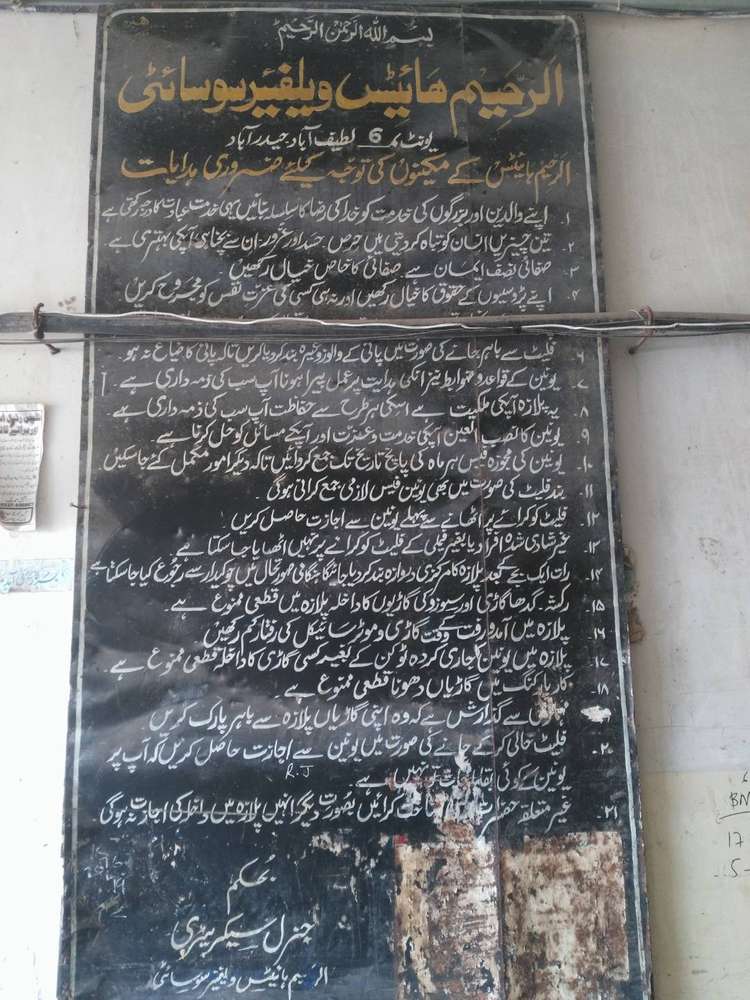 بسم اللہ الرحمٰن الرحیم
الرحیم ھائیٹس ویلفیئر سوسائٹی
یونٹ نمبر 6 لطیف آباد حیدرآباد
الرحیم ہائیٹس کے مکینوں کی توجہ کیلئے ضروری ہدایات
۱۔ اپنے والدین اور بزرگوں کی خدمت کو خدا کی رضا کا سلسلہ بنائیں یہی خدمت عبادت کا درجہ رکھتی ہے
۲۔ تین چیزیں انسان کو تباہ کر دیتی ہیں حرص۔ حسد اور غرور۔ ان سے بچنا ہی آپکی بہتری ہے۔
۳۔ صفائی نصف ایمان ہے۔ صفائی کا خاص خیال رکھیں۔
۴۔ اپنے پڑوسیوں کے حقوق کا خیال رکھیں اور نہ ہی کسی کی عزت نفس کو مجروح کریں
۶۔ فلیٹ سے باہر جانے کی صورت میں پانی کے والوز وغیرہ بند کر دیا کریں تاکہ پانی کا ضیاع نہ ہو۔
۷۔ یونین کے قواعد و ضوابط نیز انکی ہدایت پر عمل پیرا ہونا آپ سب کی ذمہ داری ہے۔
۸۔ یہ پلازہ آپکی ملکیت ہے اسکی ہر طرح سے حفاظت آپ سب کی ذمہ داری ہے۔
۹۔ یونین کا نصب العین آپکی خدمت و عزت اور آپکے مسائل کو حل کرنا ہے۔
۱۰۔ یونین کی مجوزہ فیس ہر ماہ کی پانچ تاریخ تک جمع کروائیں تاکہ دیگر امور مکمل کئے جاسکیں
۱۱۔ بند فلیٹ کی صورت میں بھی یونین فیس لازمی جمع کرانی ہوگی۔
۱۲۔ فلیٹ کو کرائے پر اٹھانے سے پہلے یونین سے اجازت حاصل کریں۔
۱۳۔ غیر شادی شدہ افراد یا بغیر فیملی کے فلیٹ کو کرائے پر نہیں اٹھایا جاسکتا ہے۔
۱۴۔ رات ایک بجے کے بعد پلازہ کا مرکزی دروازہ بند کر دیا جائیگا ہنگامی صورتحال میں چوکیدار سے رجوع کیا جاسکتا ہے
۱۵۔ رکشہ۔ گدھا گاڑی اور سوزوکی گاڑیوں کا داخلہ پلازہ میں قطعی ممنوع ہے۔
۱۶۔ پلازہ میں آمدورفت کے وقت گاڑی و موٹر سائیکل کی رفتار کم رکھیں۔
۱۷۔ پلازہ میں یونین کا جاری کردہ ٹوکن کے بغیر کسی گاڑی کا داخلہ قطعی ممنوع ہے۔
۱۸۔ کار پارکنگ میں گاڑیاں دھونا قطعی ممنوع ہے۔
سے گذارش ہے کہ وہ اپنی گاڑیاں پلازہ سے باہر پارک کریں
۲۰۔ فلیٹ خالی کر کے جانے کی صورت میں یونین سے اجازت حاصل کریں کہ آپ پر
R.J
یونین کے کوئی نہیں ہے۔
۲۱۔ غیر متعلقہ کرائیں بصورت دیگر انہیں پلازہ میں داخلہ کی اجازت نہ ہوگی
بحکم
جنرل سیکریٹری
الرحیم ہائیٹس ویلفیئر سوسائٹی
BN
17
5-